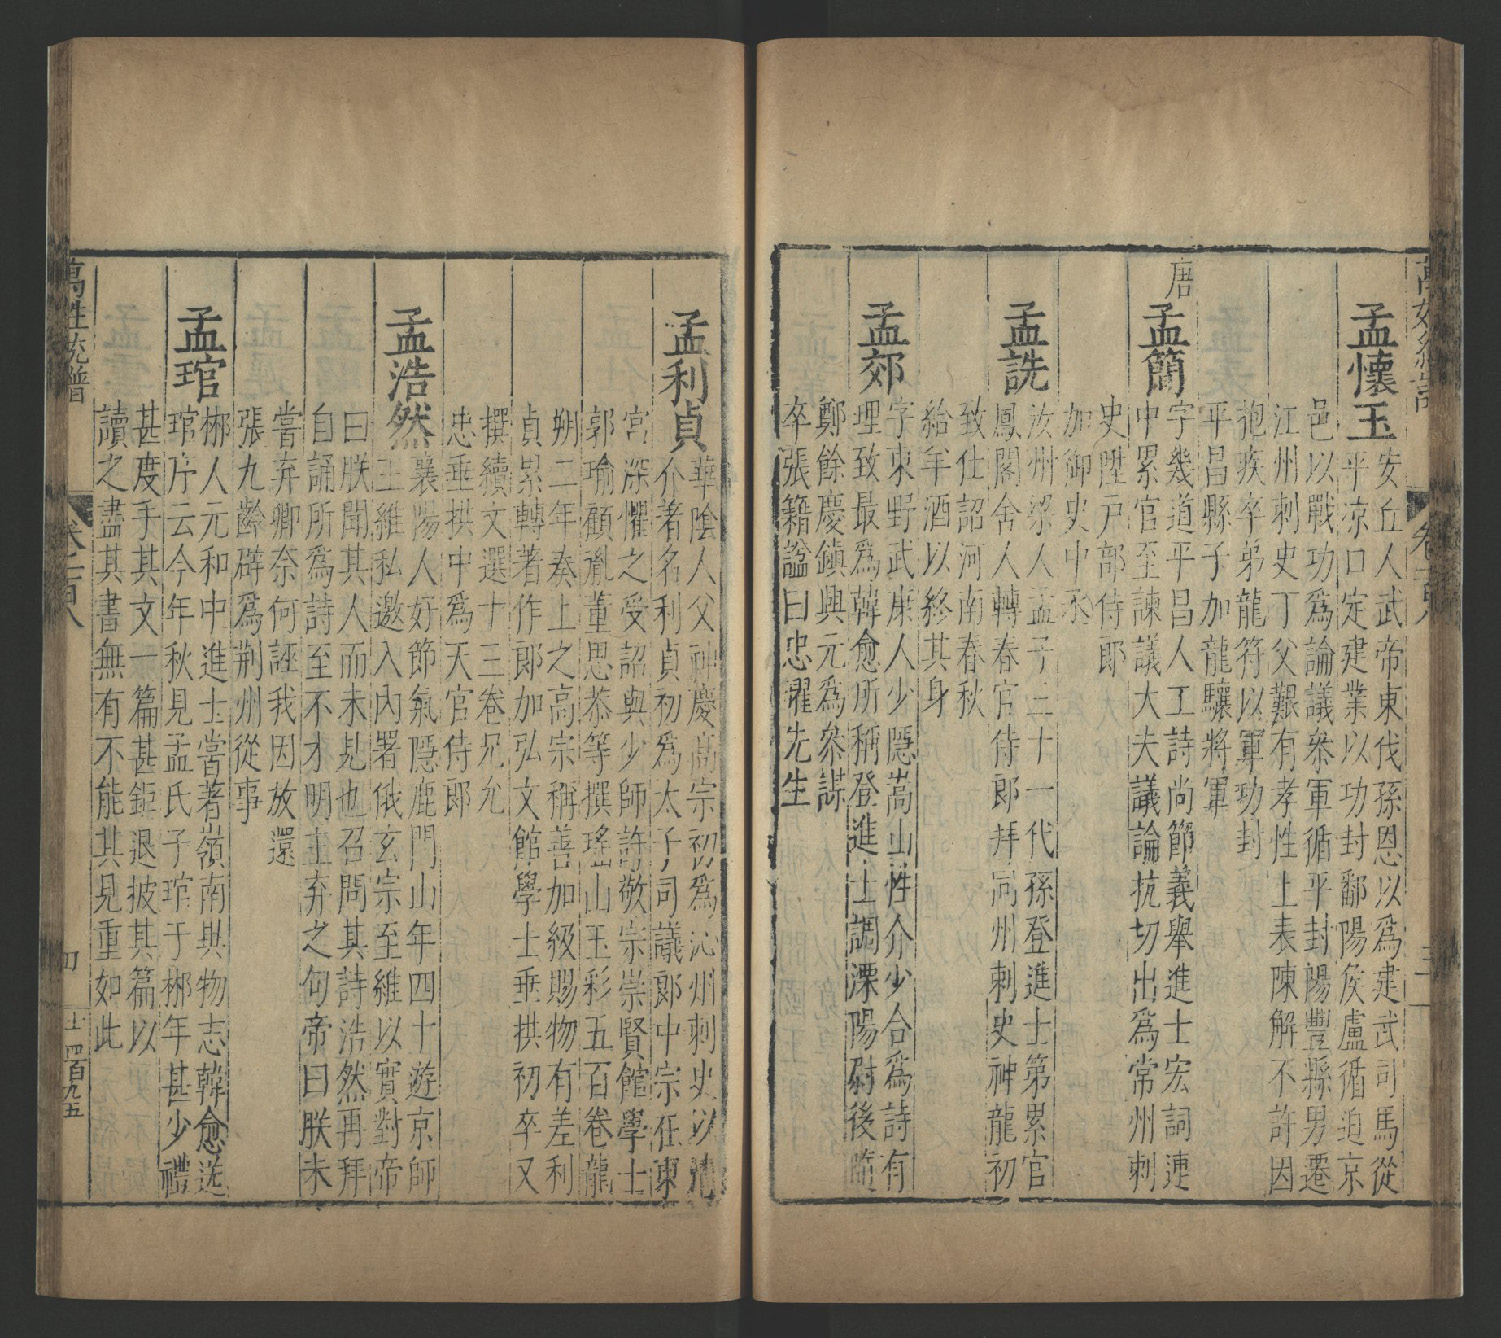 孟懷玉
安丘人武帝東伐孫恩以爲建武司馬從
平涼口定建業以功封鄱陽侯盧循迫京
邑以戰功爲論議叅軍循平封陽豐縣男遷
江州刺史丁父艱有孝性上表陳解不許因
抱疾卒弟龍符以軍功封
平昌縣子加龍驤將軍
唐
孟簡
字幾道平昌人工詩尚節義舉進士宏詞連
中累官至諫議大夫議論抗切出爲常州刺
史陞戸部侍郎
加御史中丞
孟詵
汝州梁人孟子三十一代孫登進士第累官
鳳閣舍人轉春官侍郎拜同州刺史神龍初
致仕詔河南春秋
給羊酒以終其身
孟郊
字東野武康人少隱嵩山性介少合爲詩有
理致最爲韓愈所稱登進士調溧陽尉後隨
鄭餘慶鎮興元爲叅謀
卒張籍諡曰忠濯先生
孟利貞
華陰人父神慶高宗初爲沁州刺史以清
介著名利貞初爲太子司議郎中宗在東
宮深懼之受詔與少師許敬宗崇賢館學士
郭瑜顧胤董思恭等撰瑤山玉彩五百卷龍
朔二年奏上之高宗稱善加級賜物有差利
貞累轉著作郎加弘文館學士垂拱初卒又
撰續文選十三卷兄允
忠垂拱中爲天官侍郎
孟浩然
襄陽人好節氣隱鹿門山年四十遊京師
王維私邀入內署俄玄宗至維以實對帝
曰朕聞其人而未見也召問其詩浩然再拜
自誦所爲詩至不才明主弃之句帝曰朕未
嘗弃卿奈何誣我因放還
張九齡辟爲荆州從事
孟琯
郴人元和中進士嘗著嶺南異物志韓愈送
琯序云今年秋見孟氏子琯于郴年甚少禮
甚度手其文一篇甚鉅退披其篇以
讀之盡其書無有不能其見重如此
萬姓統譜
卷一百八
四
士 四百九五